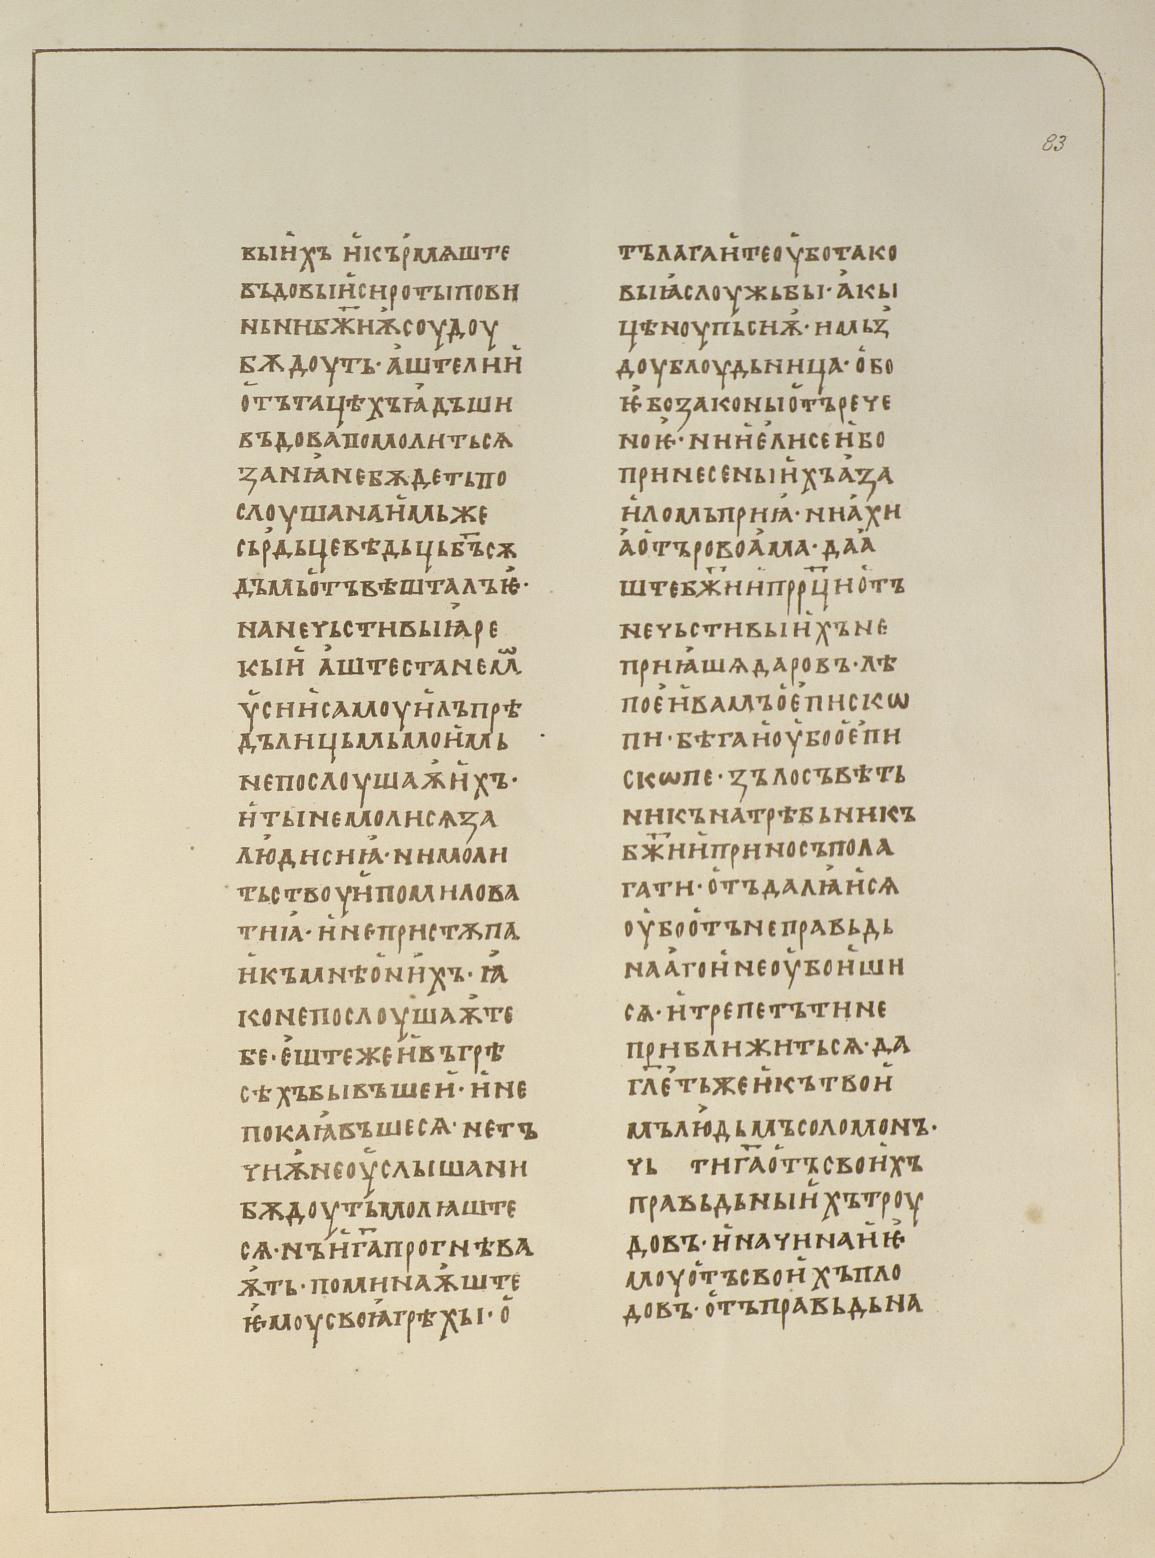 83
вꙑи҆хъ и҆къгр҄мѧште
въдовꙑи҆сиротꙑпови
ньнибж҃иѭ҆соудоу
бѫдоуть· а҆штелии҆
о҆тътацѣхъꙗ҆дъши
въдова҆помолитьсѧ
ꙁанꙗ҆небѫдетьпо
слоушанаи҆мьже
сьр҄дьцевѣдьцьбъ҃сѫ
дъмьо҆тъвѣшталъѥ҆·
нанечьстивꙑꙗ҆ре
кꙑи҆ а҆штестанемѡ҃
ѵ҆сии҆самоуи҆лъпрѣ
дълицьмьмои҆мь
непослоушаѭ҆и҆хъ·
и҆тꙑнемолисѧꙁа
лю҆дисиꙗ҆· нимоли
тьствоуи҆помилова
тиꙗ҆· и҆непристѫпа
и҆къмнѣо҆ни҆хъ· ꙗ҆
конепослоушаѭ҆те
бе· е҆штежеи҆въгрѣ
сѣхъбꙑвъшеи҆· и҆не
покаꙗ҆въшесѧ· нетъ
чиѭ҆неоу҆слꙑшани
бѫдоутьмолꙗште
сѧ· нъи҆га҃прогнѣва
ѭ҆ть· поминаѭ҆ште
ѥ҆моусвоꙗ҆грѣхꙑ· о҆
тълагаи҆теоу҆ботако
вꙑꙗ҆слоужьбꙑ· а҆кꙑ
цѣноупьсиѭ҆· имьꙁ҆
доублоудьница· о҆бо
ѥ҆боꙁаконꙑо҆търече
ноѥ҆· нии҆е҆лисеи҆бо
принесенꙑи҆хъа҆ꙁа
и҆ломьприꙗ҆· ниа҆хи
а҆о҆търовоа҆ма· даа҆
штебж҃ии҆прр҃цио҆тъ
нечьстивꙑи҆хъне
приꙗ҆шѧдаровъ· лѣ
пое҆и҆вамъо҆е҆пискѡ
пи· бѣгаи҆оу҆боо҆е҆пи
скѡпе· ꙁълосъвѣть
никънатрѣбьникъ
бж҃ии҆приносъпола
гати· о҆тъдалꙗ҆и҆сѧ
оу҆боо҆тънеправьдь
наа҆гои҆неоу҆бои҆ши
сѧ· и҆трепетътине
приближитьсѧ· да
гл҃е҆тьжеи҆кътвои҆
мълю҆дьмъсоломонъ·
чь тига҃о҆тъсвои҆хъ
правьдьнꙑи҆хътроу
довъ· и҆начинаи҆ѥ҆
моуо҆тъсвои҆хъпло
довъ· о҆тъправьдьна